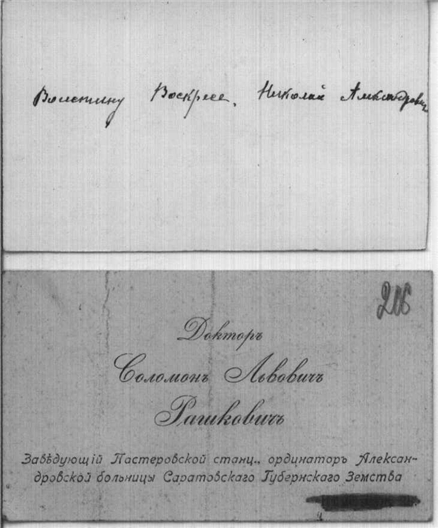 Воистину Воскресе, Николай Александрович
206
Докторъ
Соломонъ Львовичъ
Рашковичъ
Завѣдующій Пастеровской станц., ординаторъ Алексан-
дровской больницы Саратовскаго Губернскаго Земства